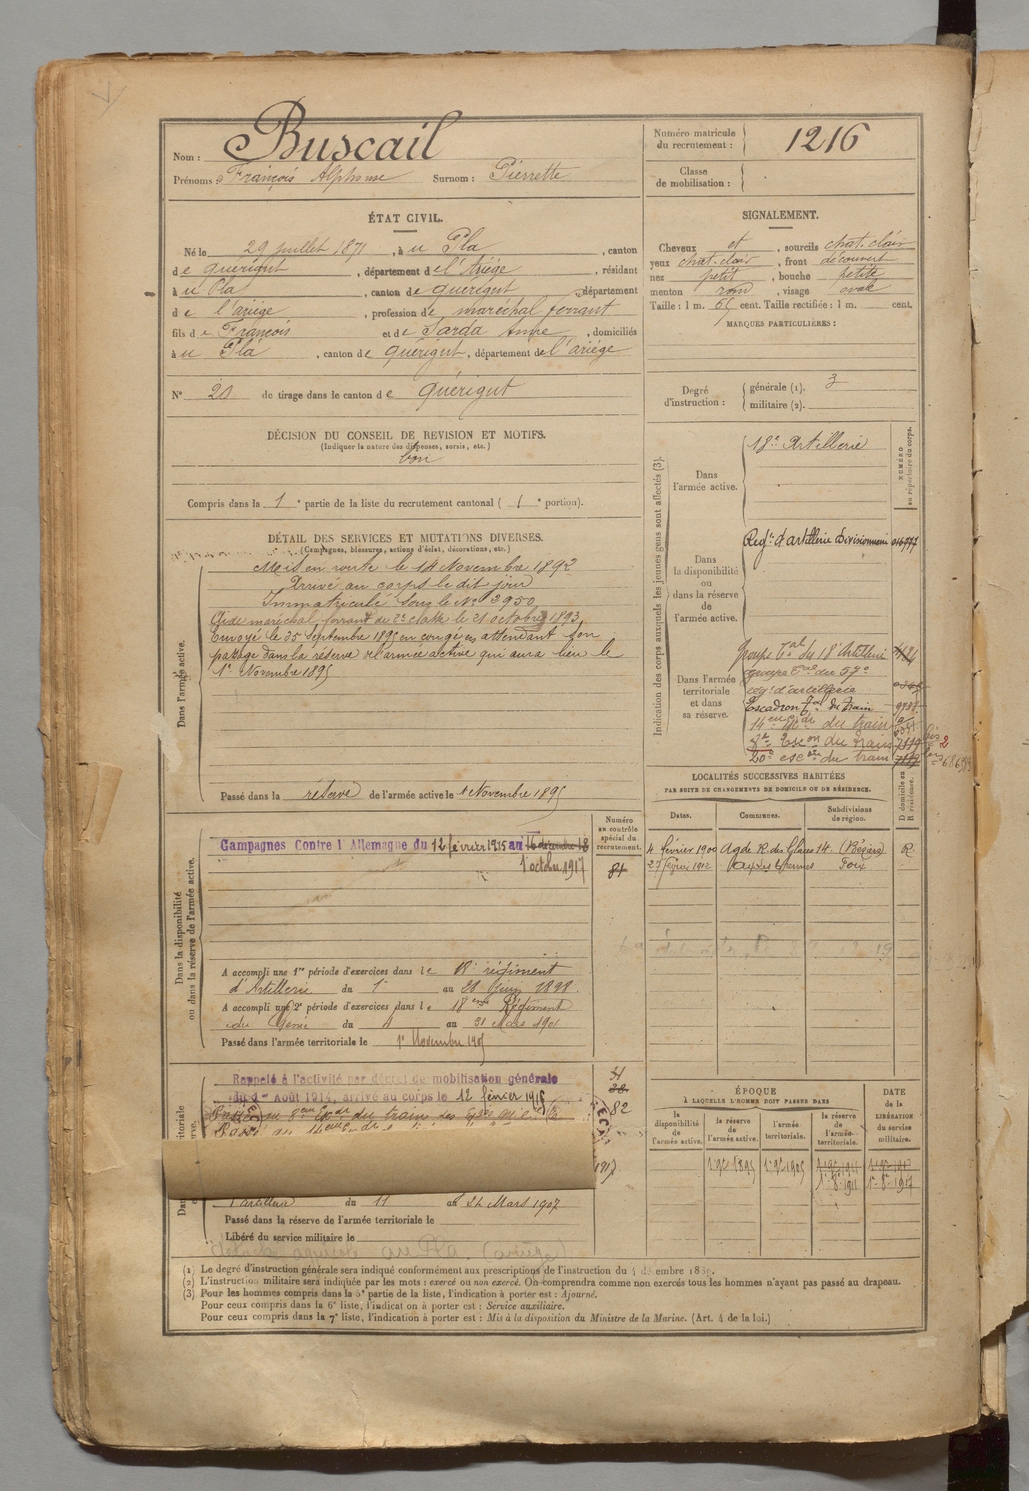 Nom : Buscail
Prénoms : François Alphonse Surnom : Pierrette
Numéro matricule du recrutement : 1216
Classe de mobilisation :
ÉTAT CIVIL.
Né le 29 juillet 1871, à u Pla, canton
de quérigut, département de l'Ariège, résidant
à u Pla, canton de quérigut, département
de l'ariège, profession de maréchal ferrant
fils de François et de Sarda Anne, domiciliés
à u Pla, canton de quérigut, département de l'ariège
N° 20 de tirage dans le canton de Quérigut
SIGNALEMENT.
Cheveux et, sourcils chat. clair
yeux chat. clair, front découvert
nez petit, bouche petite
menton rond, visage ovale
Taille : 1 m. 65 cent. Taille rectifiée : 1 m. cent.
MARQUES PARTICULIÈRES :
Degré d'instruction : générale (1). 3
militaire (2).
DÉCISION DU CONSEIL DE REVISION ET MOTIFS.
(Indiquer la nature des dispenses, sursis, etc.)
bon
Compris dans la 1e partie de la liste du recrutement cantonal (1e portion).
DÉTAIL DES SERVICES ET MUTATIONS DIVERSES.
(Campagnes, blessures, actions d'éclat, décorations, etc.)
Dans l'armée active.
Mis en route le 14 Novembre 1892
Arrivé au corps le dit jour
Immatriculé sous le No 2950
Aide maréchal ferrant de 2e classe le 21 octobre 1893
Envoyé le 25 Septembre 1895 en congé en attendant son
passage dans la réserve de l'armée active qui aura lieu le
1er Novembre 1895
Passé dans la réserve de l'armée active le 1 Novembre 1895
Indication des corps auxquels les jeunes gens sont affectés (3).
NUMÉRO au répertoire du corps.
Dans l'armée active.
18e Artillerie
Dans la disponibilité ou dans la réserve de l'armée active.
Regt d'artillerie Divisionnaire
Dans l'armée territoriale et dans sa réserve.
groupe Tal du 18e Artillerie
groupe Tal du 57e
reg. d'artillerie
Escadron Tal du Train
14eme Escdr du train
Escon du Train
20e escon du train
LOCALITÉS SUCCESSIVES HABITÉES
PAR SUITE DE CHANGEMENTS DE DOMICILE OU DE RÉSIDENCE.
Dates. Communes. Subdivisions de région. D domicile ou R résidence.
4 février 1900 Agde R. des Glaces 14 (Béziers) R
27 février 1912 Ax les thermes Foix
Numéro au contrôle spécial du recrutement.
84
Dans la disponibilité ou dans la réserve de l'armée active.
Campagnes Contre l'Allemagne du 12 février 1915 au 16 décembre 18
1er octobre 1917
A accompli une 1re période d'exercices dans le 18e régiment
d'Artillerie du 1er au 28 Juin 1898
A accompli une 2e période d'exercices dans le 18eme Régiment
du Génie du 4 au 31 Mars 1901
Passé dans l'armée territoriale le 1er Novembre 1905
Rappelé à l'activité par décret de mobilisation générale
du 1er Août 1914, arrivé au corps le 12 février 1915
82
1917
l'artillerie du 11 au 24 Mars 1907
Passé dans la réserve de l'armée territoriale le
Libéré du service militaire le
détaché agricole au Pla. (ariège)
ÉPOQUE
À LAQUELLE L'HOMME DOIT PASSER DANS
la disponibilité de l'armée active. la réserve de l'armée active. l'armée territoriale. la réserve de l'armée territoriale.
DATE de la LIBÉRATION du service militaire.
1er 9bre 1895 1er 9bre 1905
(1) Le degré d'instruction générale sera indiqué conformément aux prescriptions de l'instruction du 4 décembre 1889.
(2) L'instruction militaire sera indiquée par les mots : exercé ou non exercé. On comprendra comme non exercés tous les hommes n'ayant pas passé au drapeau.
(3) Pour les hommes compris dans la 5e partie de la liste, l'indication à porter est : Ajourné.
Pour ceux compris dans la 6e liste, l'indication à porter est : Service auxiliaire.
Pour ceux compris dans la 7e liste, l'indication à porter est : Mis à la disposition du Ministre de la Marine. (Art. 4 de la loi.)